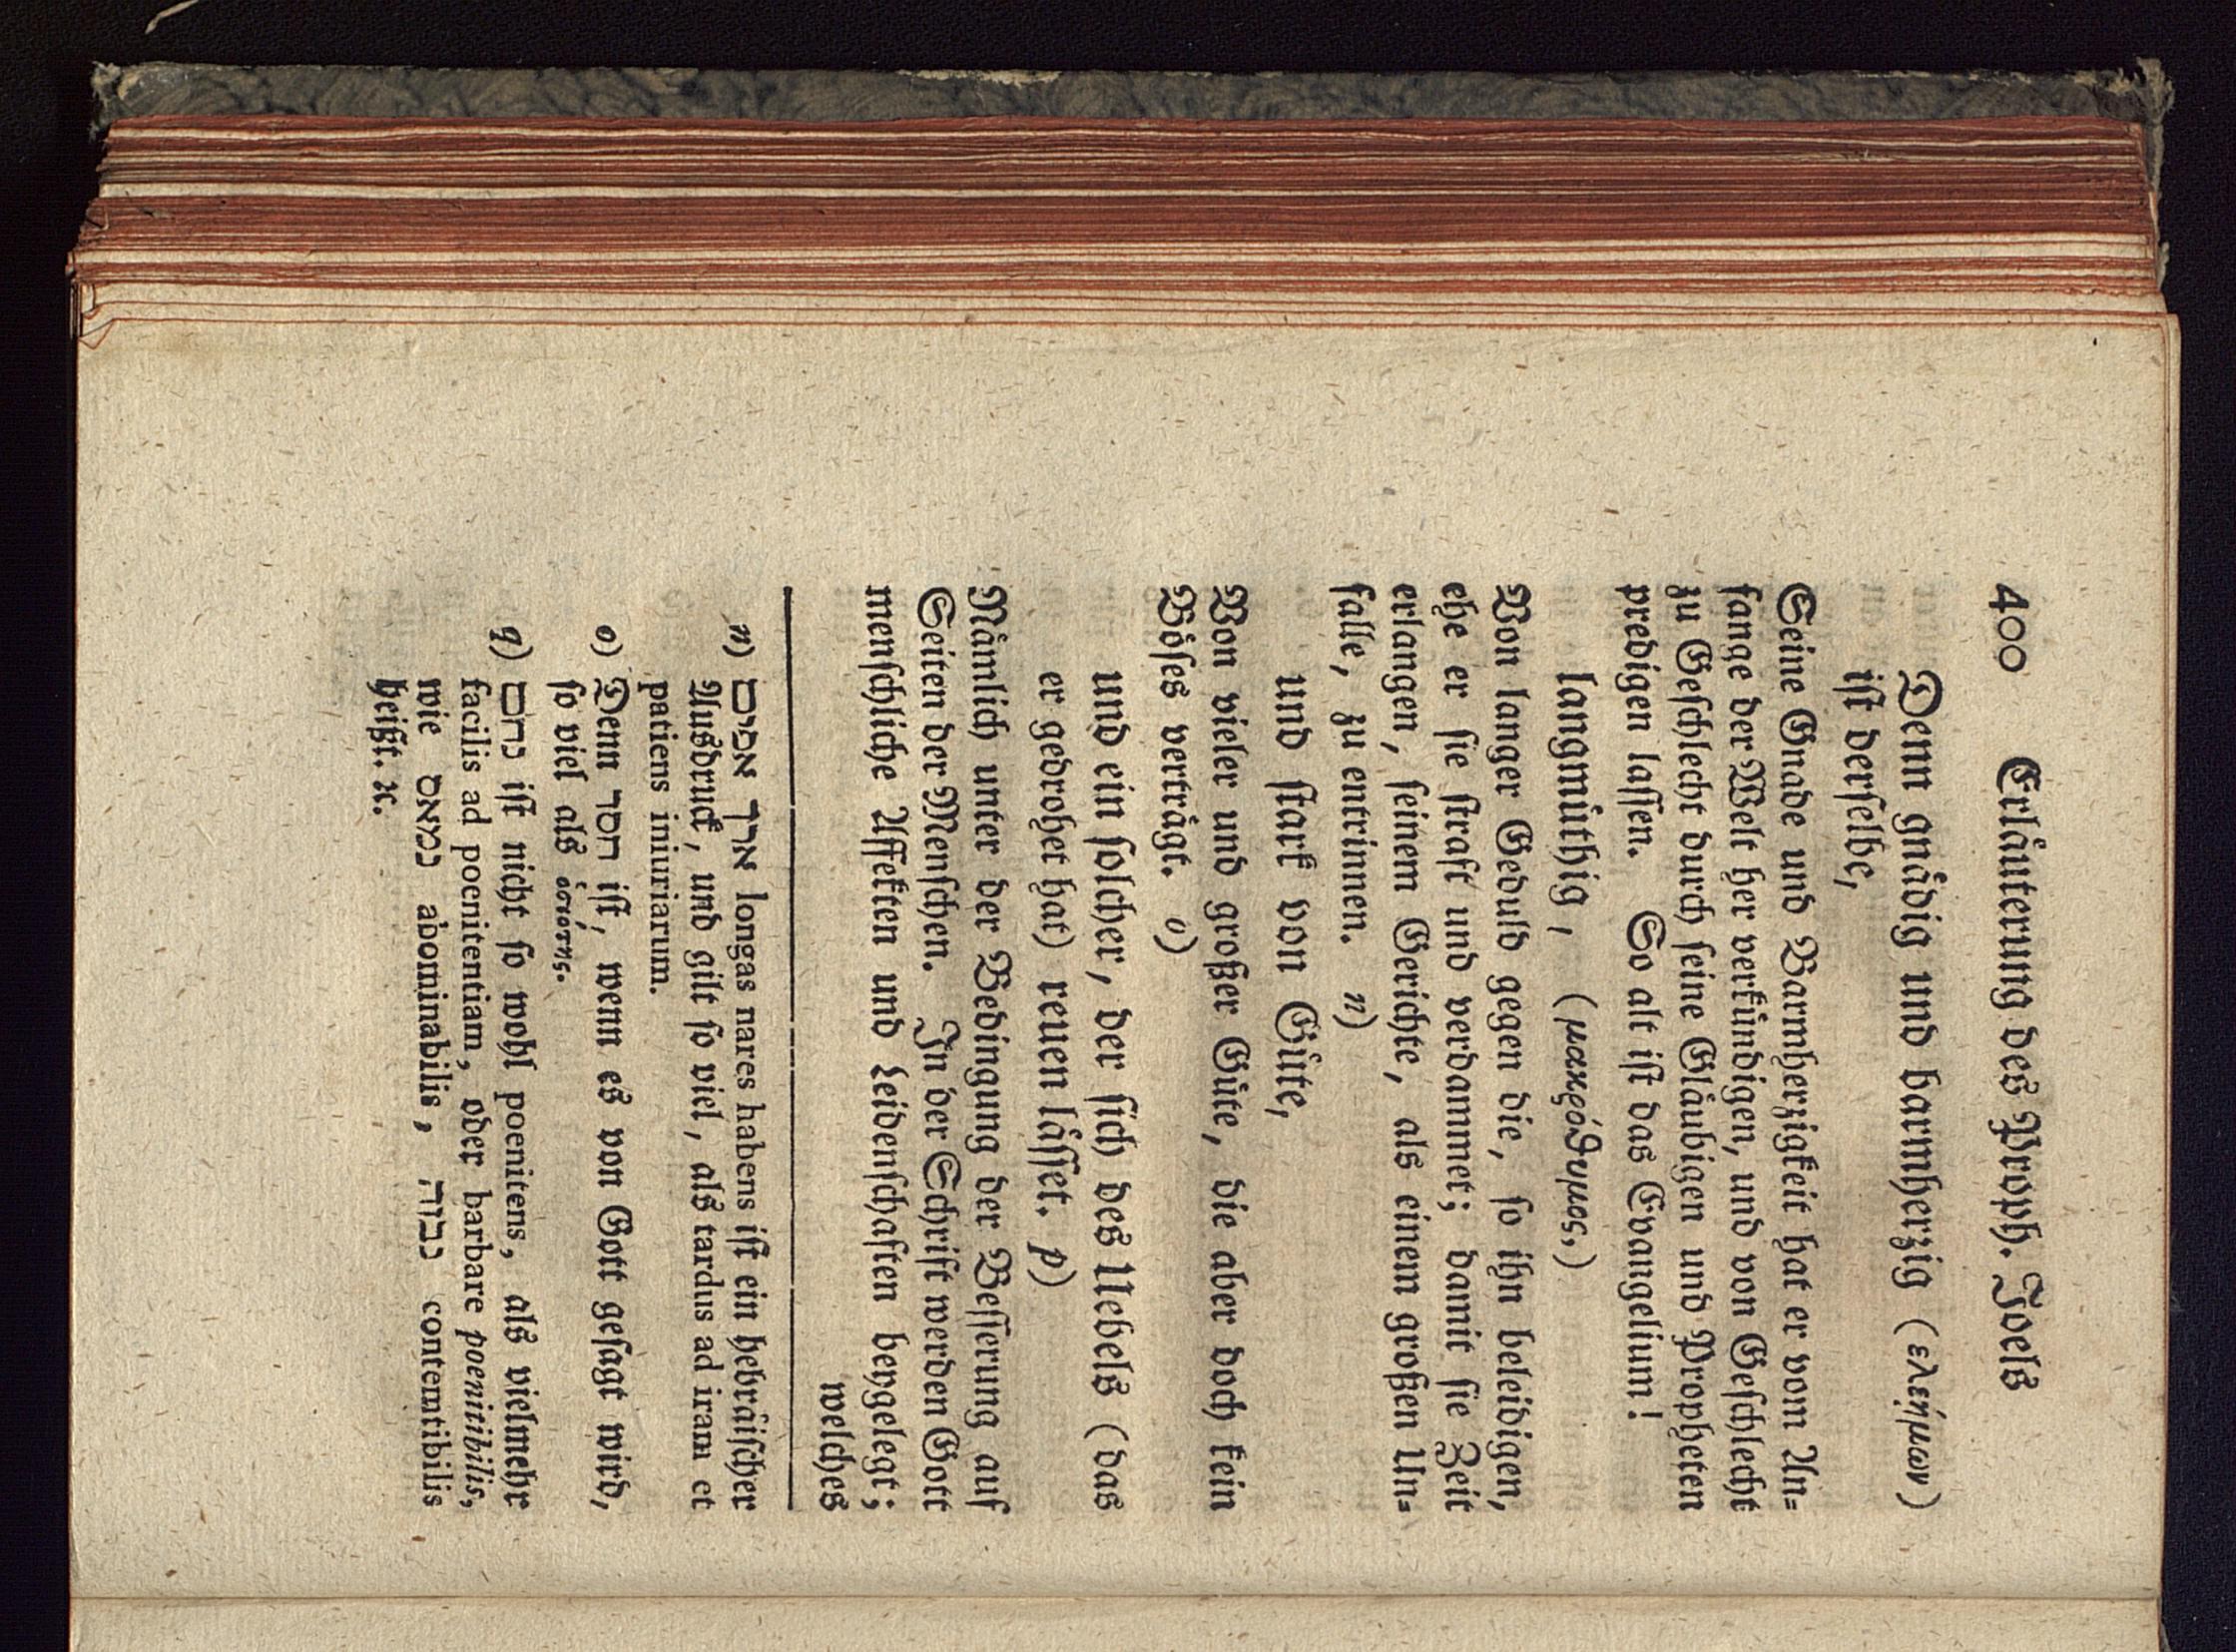 400 Erläuterung des Proph. Joels
Denn gnädig und barmherzig (ελεήμων)
ist derselbe,
Seine Gnade und Barmherzigkeit hat er vom An-
fange der Welt her verkündigen, und von Geschlecht
zu Geschlecht durch seine Gläubigen und Propheten
predigen lassen. So alt ist das Evangelium!
langmüthig, (μακρόθυμος,)
Von langer Geduld gegen die, so ihn beleidigen,
ehe er sie straft und verdammet; damit sie Zeit
erlangen, seinem Gerichte, als einem großen Un-
falle, zu entrinnen. n)
und stark von Güte,
Von vieler und großer Güte, die aber doch kein
Böses verträgt. o)
und ein solcher, der sich des Uebels (das
er gedrohet hat) reuen lässet. p)
Nämlich unter der Bedingung der Besserung auf
Seiten der Menschen. In der Schrift werden Gott
menschliche Affekten und Leidenschaften beygelegt;
welches
n) ארך אפים longas nares habens ist ein hebräischer
Ausdruck, und gilt so viel, als tardus ad iram et
patiens iniuriarum.
o) Denn חסד ist, wenn es von Gott gesagt wird,
so viel als ὁσιότης.
q) נחם ist nicht so wohl poenitens, als vielmehr
facilis ad poenitentiam, oder barbare poenitibilis,
wie נמאס abominabilis, נבזה contemtibilis
heißt. ꝛc.